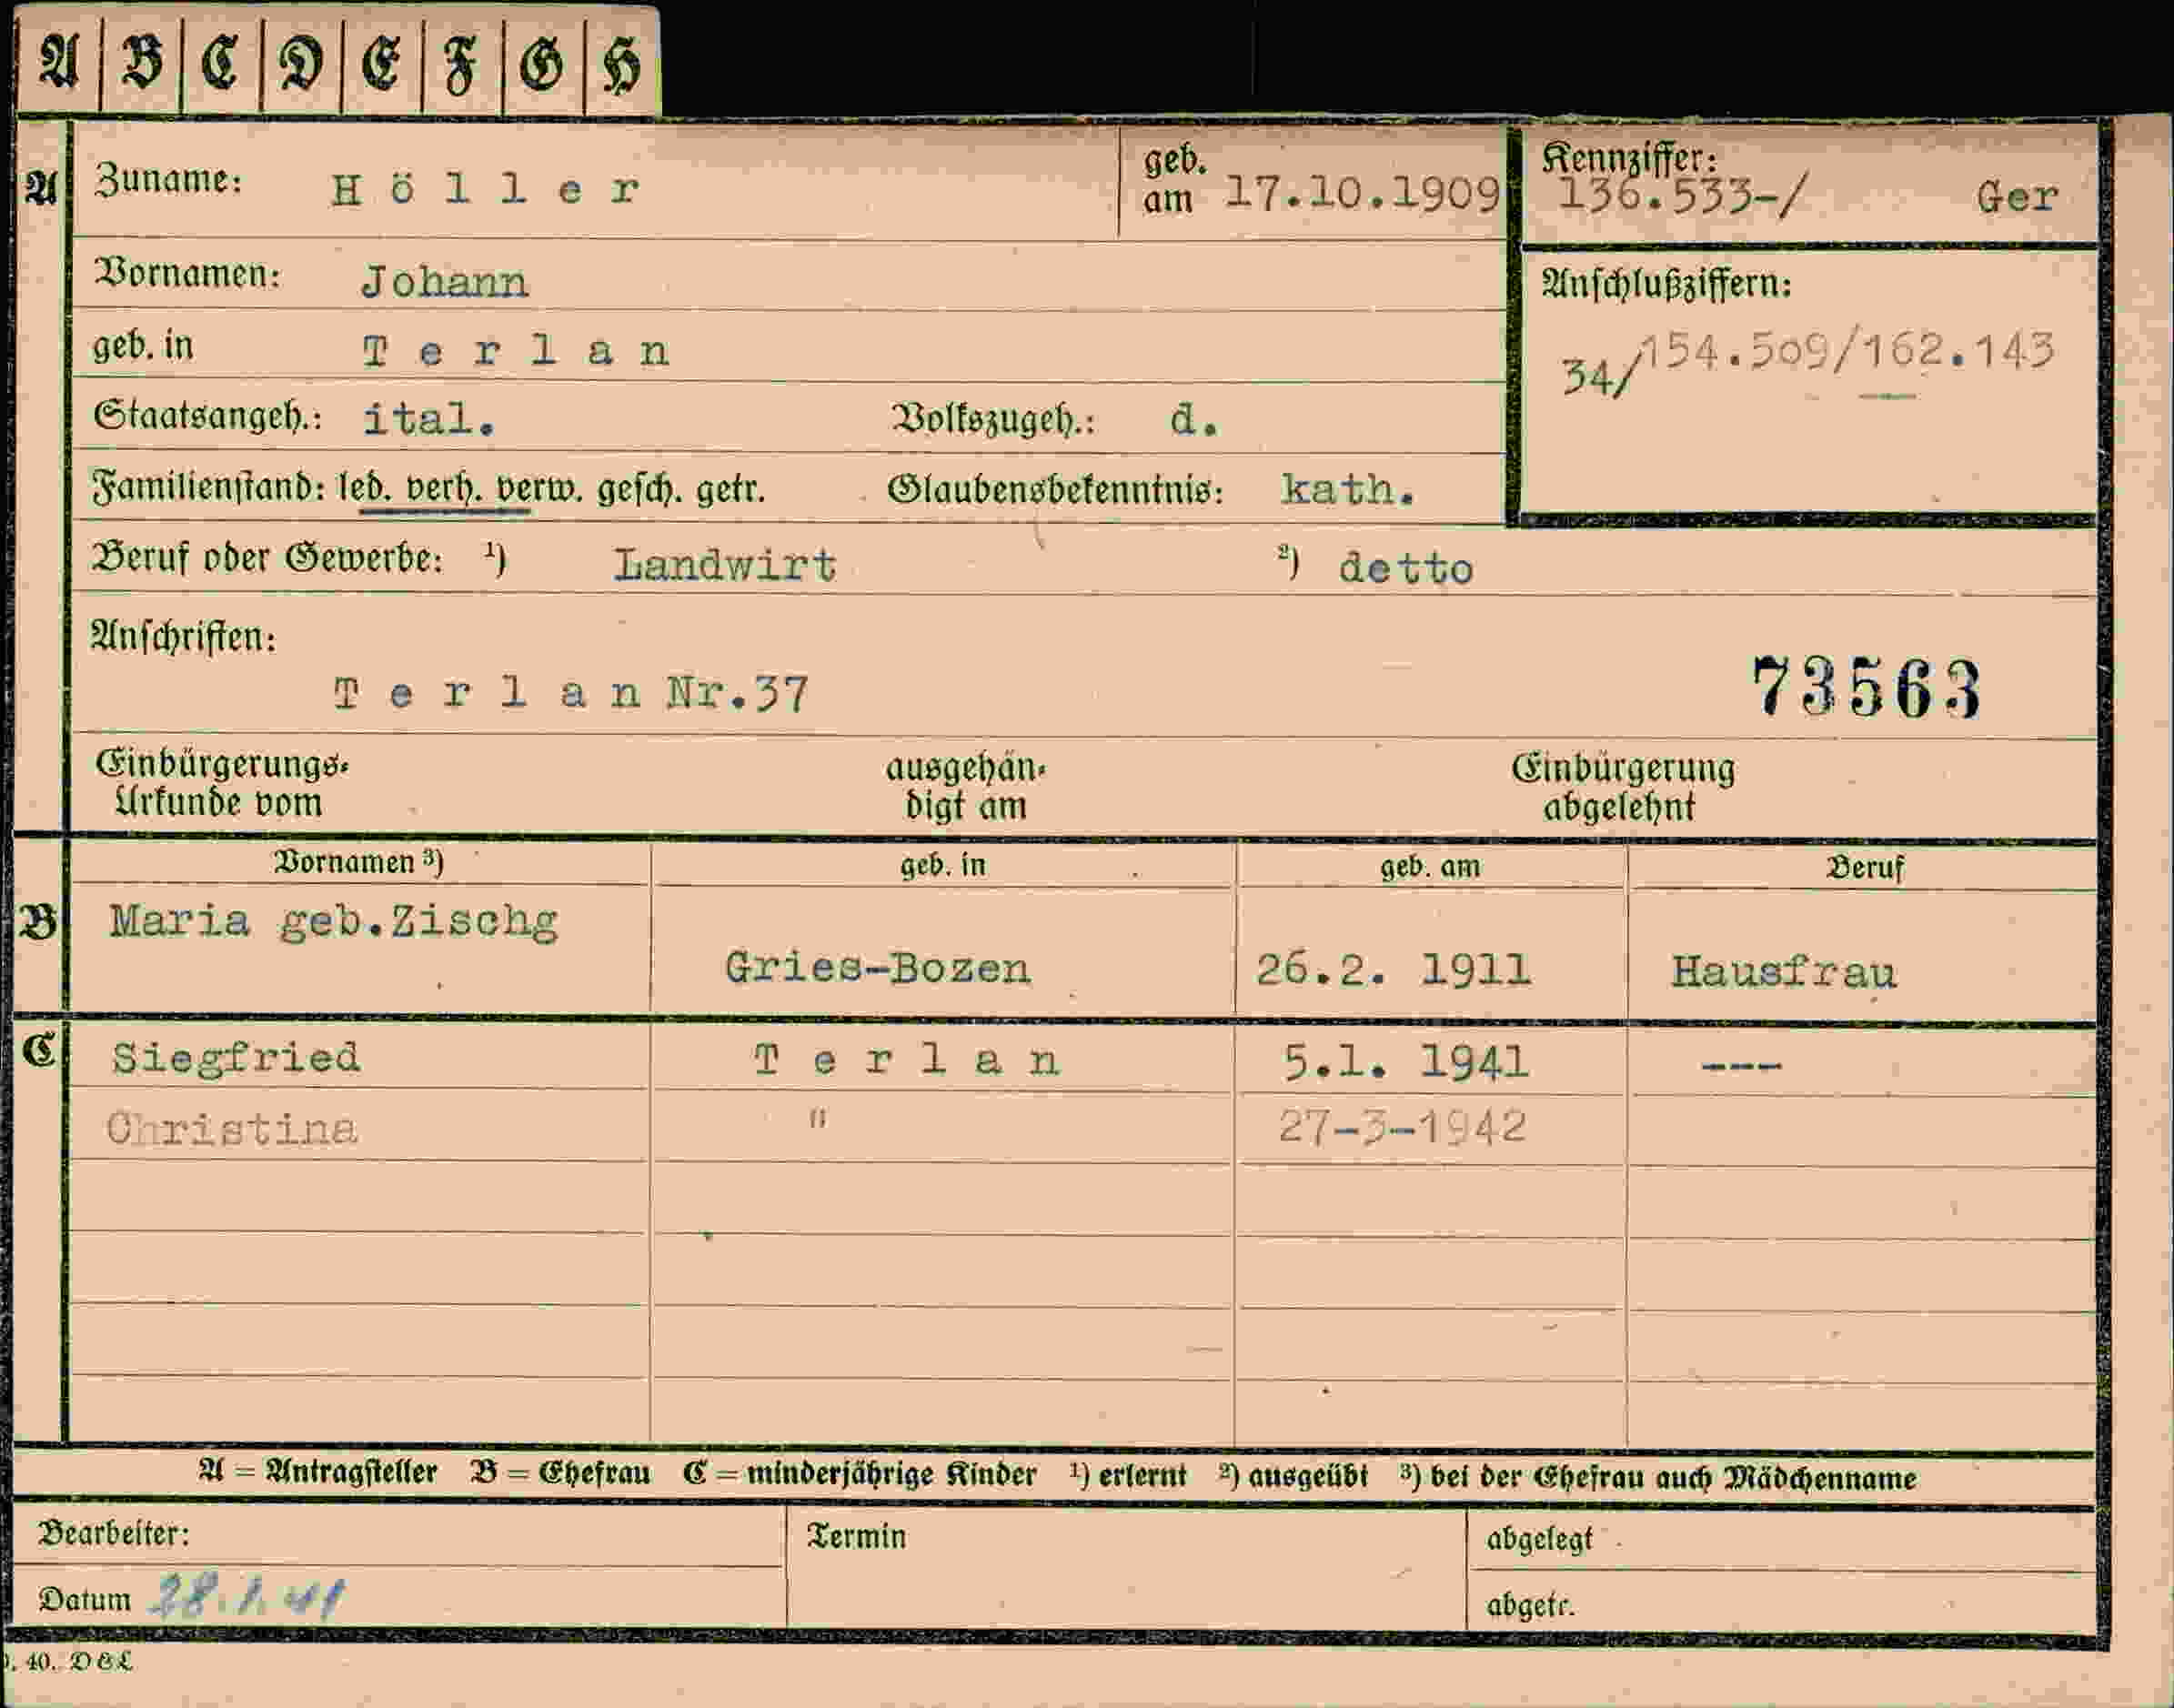 A B C D E F G H
A Zuname: Höller geb. am 17.10.1909 Kennziffer: 136.533-/ Ger
Vornamen: Johann Anschlußziffern:
geb. in Terlan 34/154.509/162.143
Staatsangeh.: ital. Volkszugeh.: d.
Familienstand: led. verh. verw. gesch. getr. Glaubensbekenntnis: kath.
Beruf oder Gewerbe: ¹) Landwirt ²) detto
Anschriften:
Terlan Nr.37 73563
Einbürgerungs- ausgehän- Einbürgerung
Urkunde vom digt am abgelehnt
Vornamen ³) geb. in geb. am Beruf
B Maria geb.Zischg
Gries-Bozen 26.2. 1911 Hausfrau
C Siegfried Terlan 5.1. 1941 ---
Christina " 27-3-1942
A = Antragsteller B = Ehefrau C = minderjährige Kinder ¹) erlernt ²) ausgeübt ³) bei der Ehefrau auch Mädchenname
Bearbeiter: Termin abgelegt
Datum 28.1.41 abgetr.
40. D&L